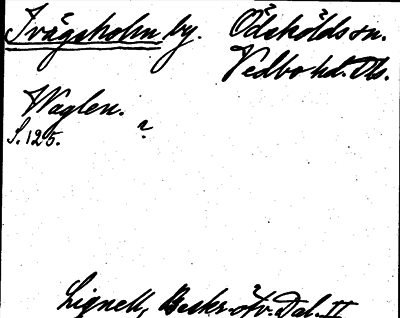 Ivägsholm by. Ödskölds sn.
Vedbo hd. Ds.
Waglen.
S. 125. ?
Lignell, Beskr. öfv. Dal. II